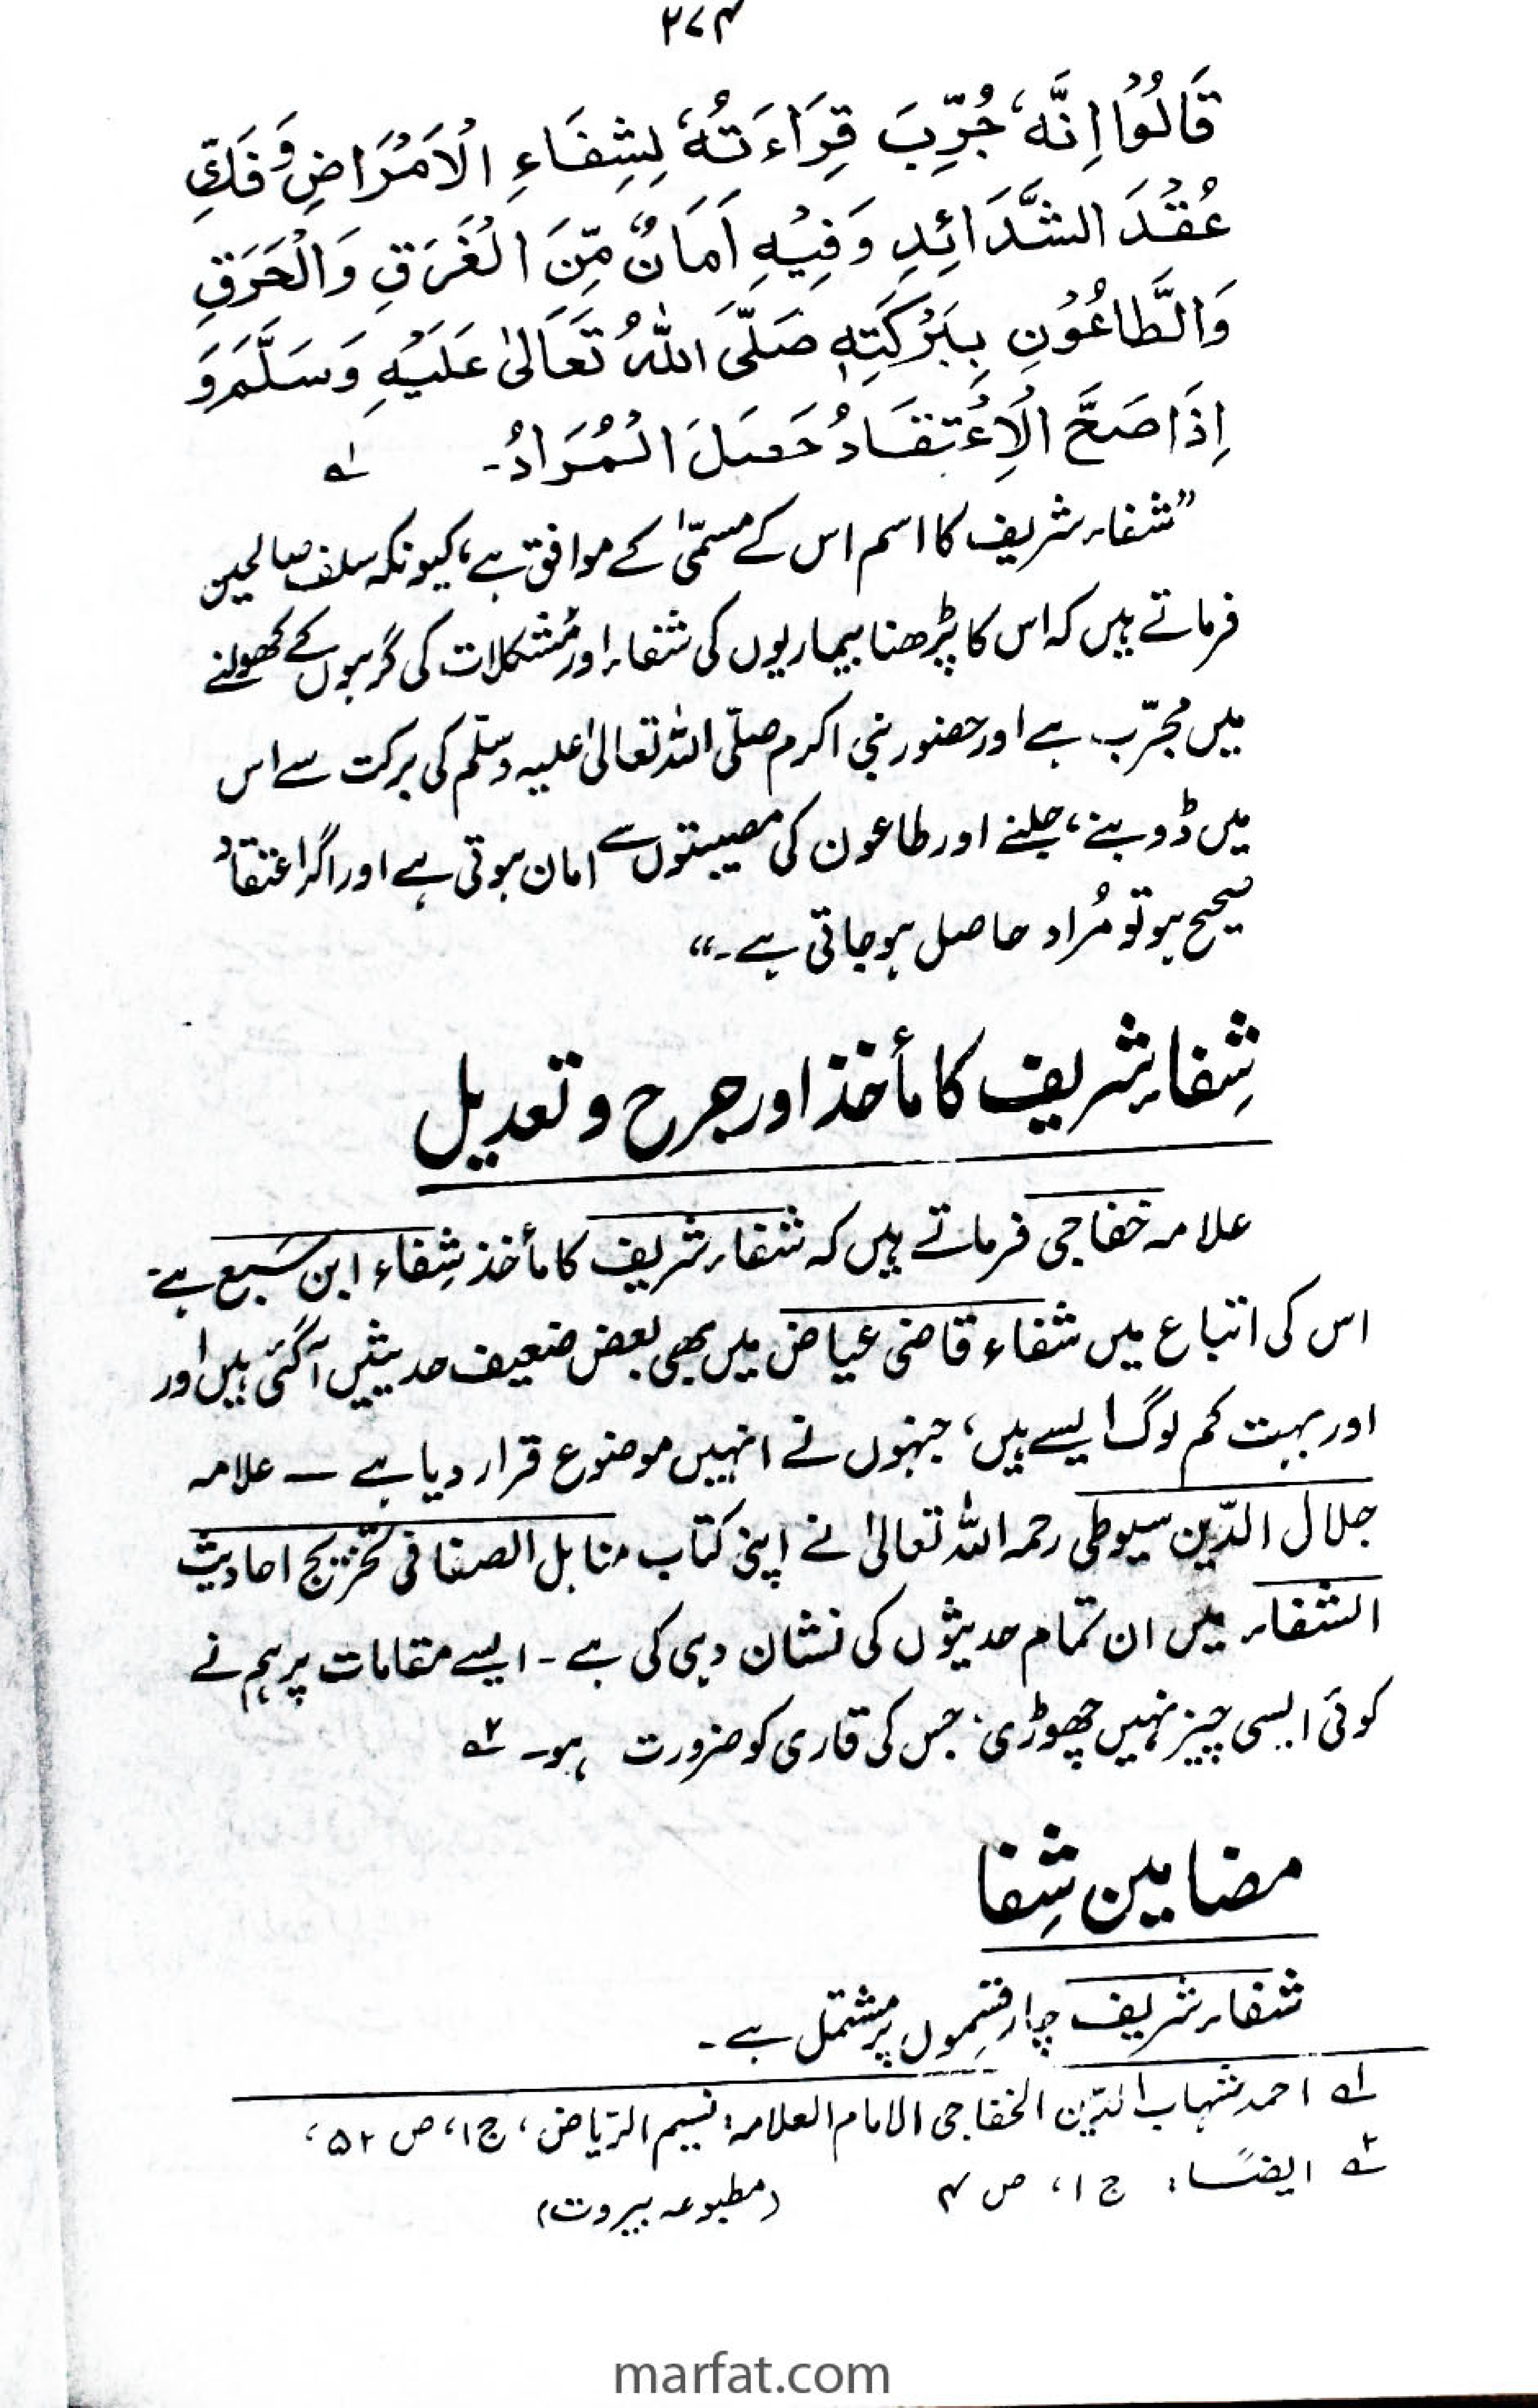 ۲۷۴
قَالُوْا اِنَّهٗ جُرِّبَ قِرَاءَتُهٗ لِشِفَاءِ الْاَمْرَاضِ وَفَكِّ
عُقْدَ الشَّدَائِدِ وَفِيْهِ اَمَانٌ مِّنَ الْغَرَقِ وَالْحَرَقِ
وَالطَّاعُوْنِ بِبَرْكَتِهٖ صَلَّى اللهُ تَعَالىٰ عَلَيْهِ وَسَلَّمَ وَ
اِذَا صَحَّ الْاِعْتِقَادُ حَصَلَ الْمُرَادُ۔ ۱ے
”شفاء شریف کا اسم اس کے مسمّیٰ کے موافق ہے، کیونکہ سلف صالحین
فرماتے ہیں کہ اس کا پڑھنا بیماریوں کی شفاء اور مُشکلات کی گرہوں کے کھولنے
میں مجرّب ہے اور حضور نبی اکرم صلّی اللہ تعالیٰ علیہ وسلّم کی برکت سے اس
میں ڈوبنے، جلنے اور طاعون کی مصیبتوں سے امان ہوتی ہے اور اگر اعتقاد
صحیح ہو تو مُراد حاصل ہو جاتی ہے۔“
شِفاء شریف کا مأخذ اور جرح و تعدیل
علامہ خفاجی فرماتے ہیں کہ شفاء شریف کا مأخذ شِفاء ابن سَبع ہے۔
اس کی اتباع میں شفاء قاضی عیاض میں بھی بعض ضعیف حدیثیں آگئی ہیں اور
اور بہت کم لوگ ایسے ہیں، جنہوں نے انہیں موضوع قرار دیا ہے — علامہ
جلال الدّین سیوطی رحمہ اللہ تعالیٰ نے اپنی کتاب مناہل الصفا فی تخریج احادیث
الشفاء میں ان تمام حدیثوں کی نشان دہی کی ہے۔ ایسے مقامات پر ہم نے
کوئی ایسی چیز نہیں چھوڑی، جس کی قاری کو ضرورت ہو۔ ۲ے
مضامین شِفا
شفاء شریف چار قسِموں پر مشتمل ہے۔
۱ے احمد شہاب الدّین الخفاجی الامام العلامہ: نسیم الرّیاض، ج۱، ص ۵۲،
۲ے ایضًا: ج ۱، ص ۴ (مطبوعہ بیروت)
marfat.com